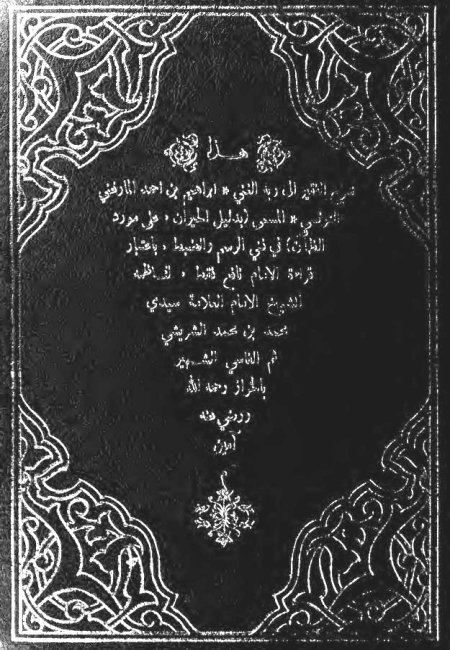 هذا
الفقير الى ربه الغني * ابراهيم بن احمد المارغني
التونسي * المسمى (بدليل الحيران ، على مورد
الظمآن) في فني الرسم والضبط ، باعتبار
قراءة الامام نافع فقط ، لناظمه
الشيخ الامام العلامة سيدي
محمد بن محمد الشريشي
ثم الفاسي الشهير
بالخراز رحمه الله
ورضي عنه
آمين